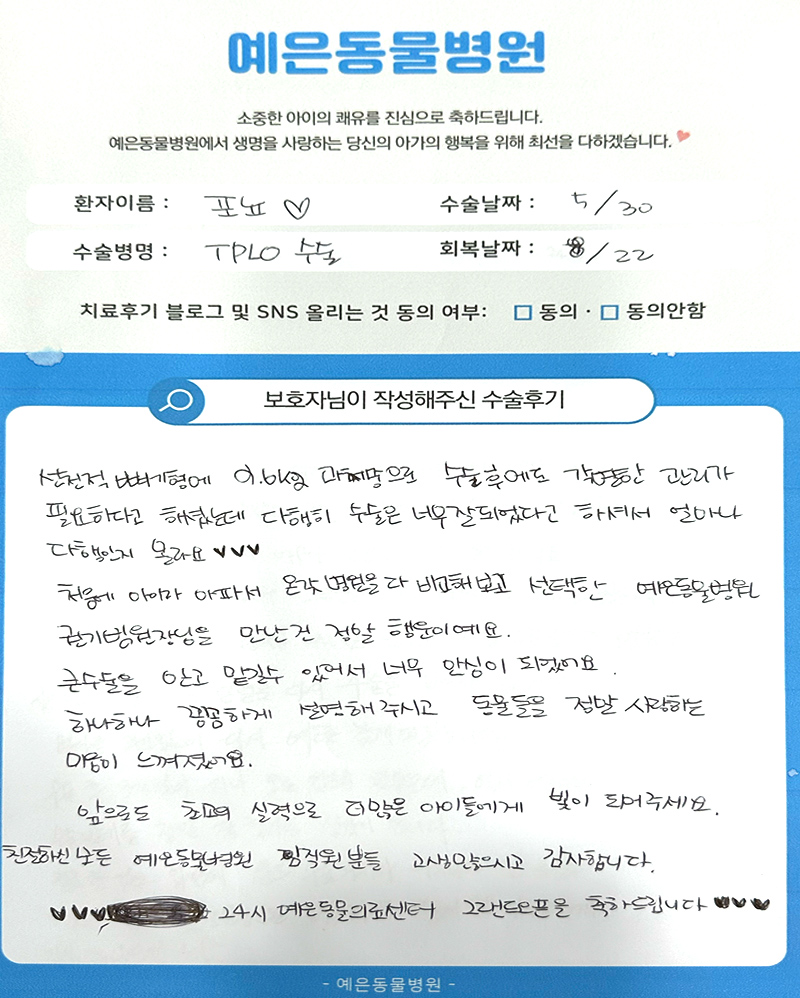 예은동물병원
소중한 아이의 쾌유를 진심으로 축하드립니다.
예은동물병원에서 생명을 사랑하는 당신의 아가의 행복을 위해 최선을 다하겠습니다.
환자이름 : 포뇨 ♡ 수술날짜 : 5/30
수술병명 : TPLO 수술 회복날짜 : 8/22
치료후기 블로그 및 SNS 올리는 것 동의 여부: □ 동의 · □ 동의안함
보호자님이 작성해주신 수술후기
선천적 뼈기형에 9.6kg 과체중으로 수술후에도 각별한 관리가
필요하다고 해셨는데 다행히 수술은 너무잘되었다고 하셔서 얼마나
다행인지 몰라요 ♥♥♥
처음에 아이가 아파서 온갖 병원을 다 비교해보고 선택한 예은동물병원
권기범원장님을 만난건 정말 행운이예요.
큰수술을 믿고 맡길수 있어서 너무 안심이 되었어요.
하나하나 꼼꼼하게 설명해주시고 동물들을 정말 사랑하는
마음이 느껴졌어요.
앞으로도 최고의 실력으로 더많은 아이들에게 빛이 되어주세요.
친절하신 모든 예은동물병원 임직원분들 고생많으시고 감사합니다.
♥♥♥ 24시 예은동물의료센터 그랜드오픈을 축하드립니다 ♥♥♥
- 예은동물병원 -